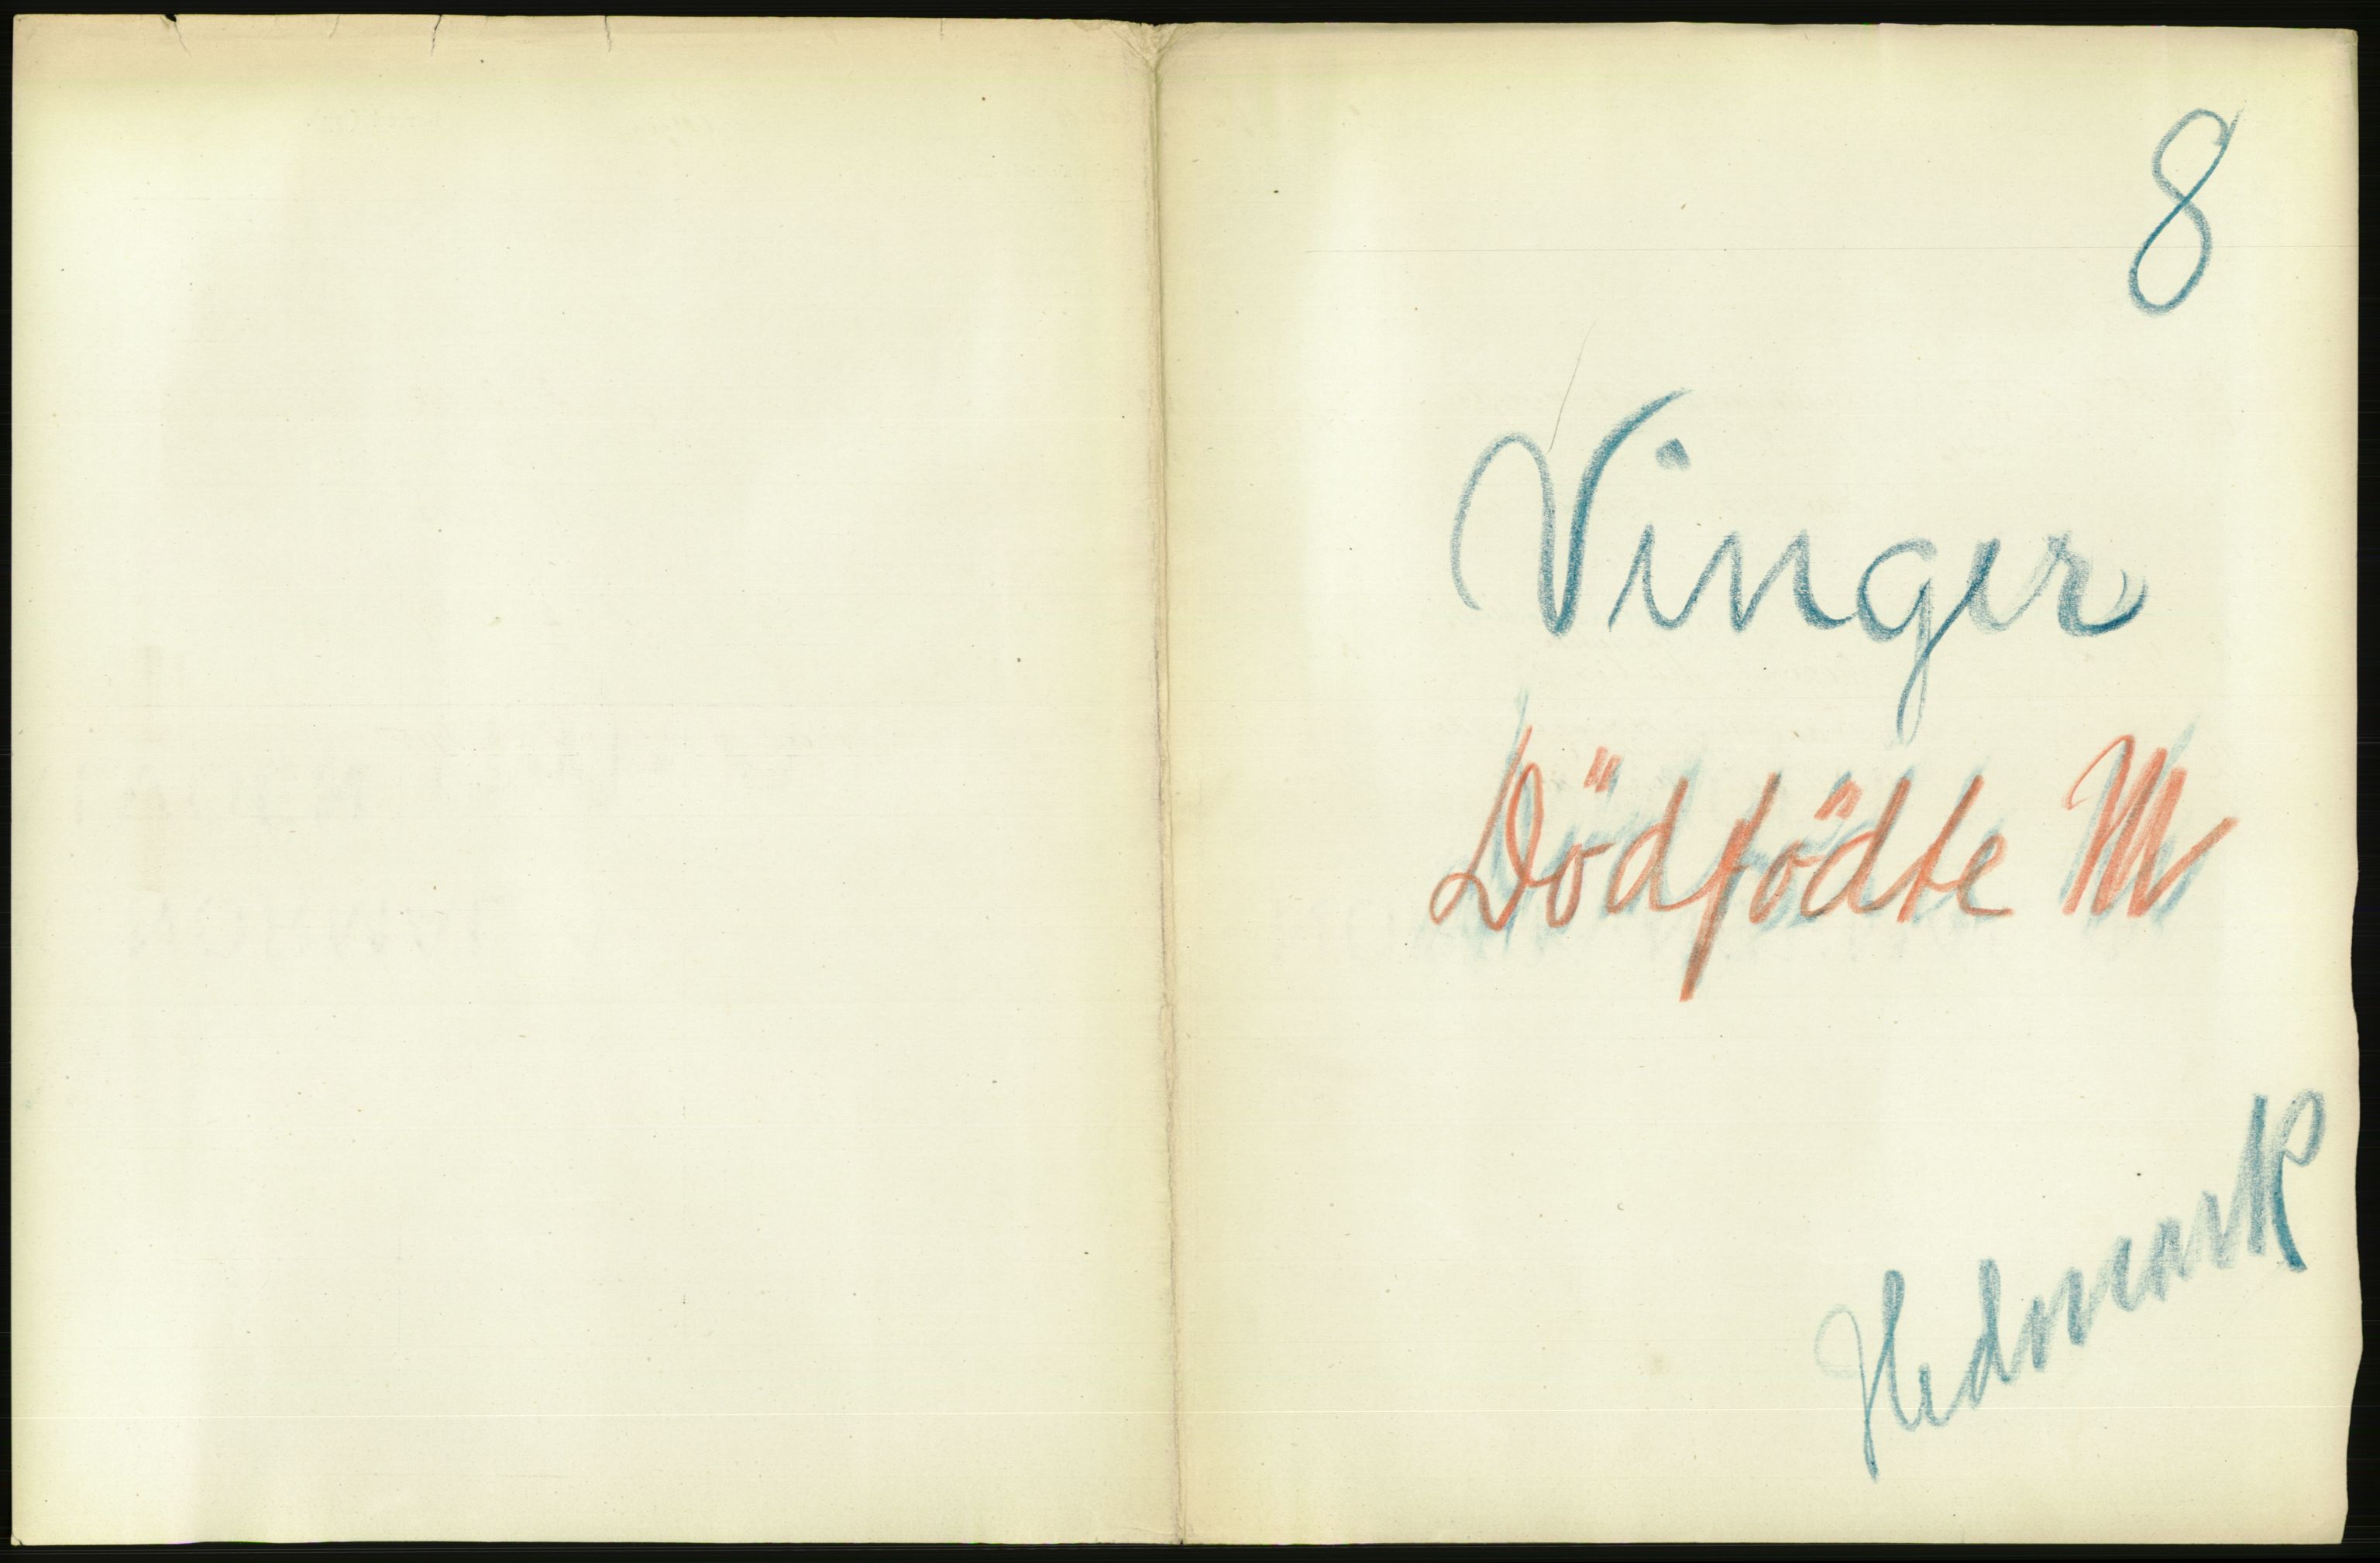 8
Vinger
Dödfödte M
Hedmark